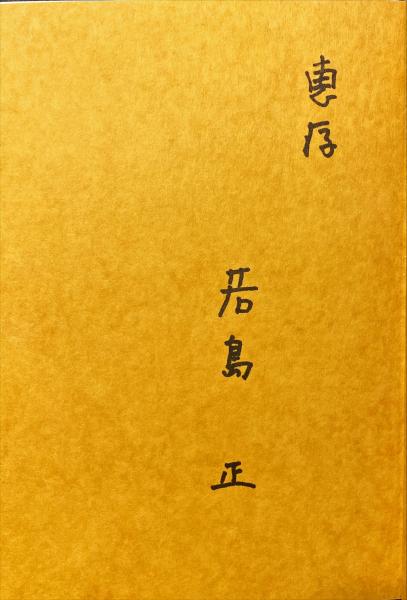 恵存
若島 正